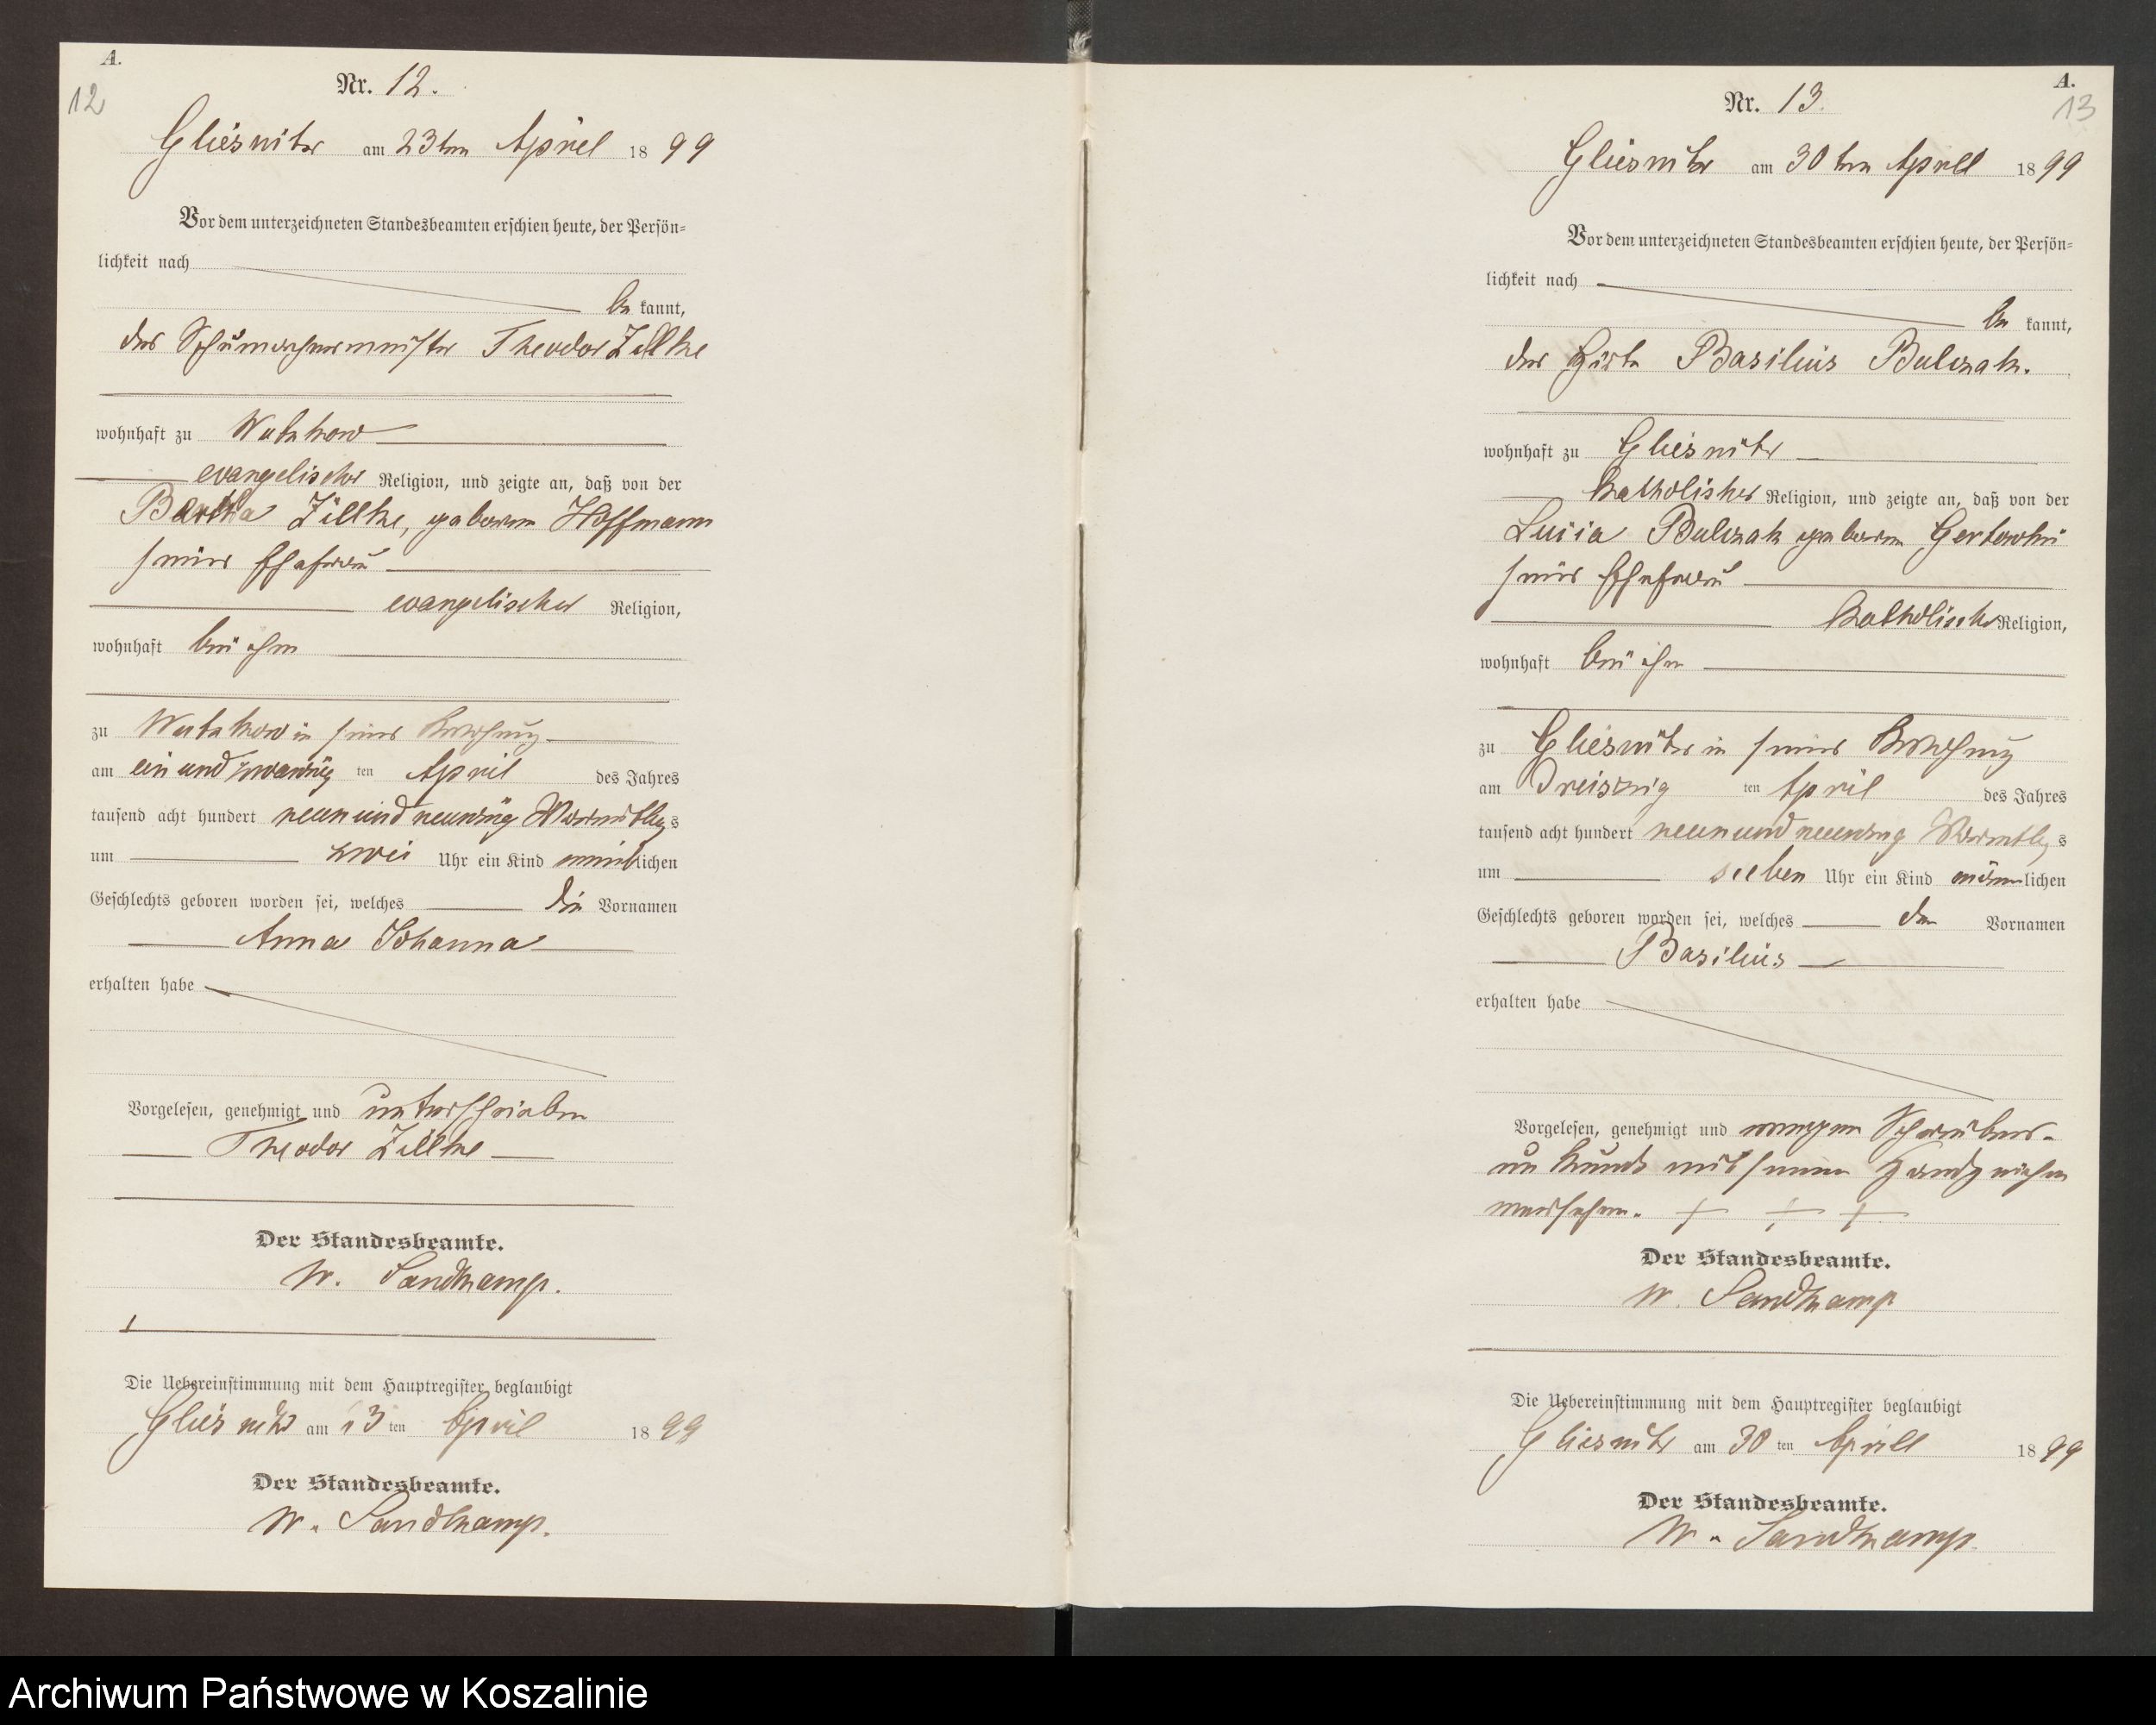 A.
12
Nr. 12.
Gliesnitz am 23ten April 1899
Vor dem unterzeichneten Standesbeamten erschien heute, der Persön-
lichkeit nach
be kannt,
der Schumachermeister Theodor Zillke
wohnhaft zu Wutzkow
evangelischer Religion, und zeigte an, daß von der
Bertha Zillke, geboren Hoffmann
seiner Ehefrau
evangelischer Religion,
wohnhaft bei ihm
zu Wutzkow in seiner Wohnung
am ein und zwanzig ten April des Jahres
tausend acht hundert neun und neunzig Vormittags
um zwei Uhr ein Kind weiblichen
Geschlechts geboren worden sei, welches die Vornamen
Anna Johanna
erhalten habe
Vorgelesen, genehmigt und unterschrieben
Theodor Zillke
Der Standesbeamte.
W. Sandkamp.
Die Uebereinstimmung mit dem Hauptregister beglaubigt
Gliesnitz am 23 ten April 1899
Der Standesbeamte.
W. Sandkamp.
A.
13
Nr. 13.
Gliesnitz am 30ten April 1899
Vor dem unterzeichneten Standesbeamten erschien heute, der Persön-
lichkeit nach
be kannt,
der Hirte Basilius Bulczak.
wohnhaft zu Gliesnitz
katholischer Religion, und zeigte an, daß von der
Bulczak geboren
seiner Ehefrau
katholischer Religion,
wohnhaft bei ihm
zu Gliesnitz in seiner Wohnung
am Dreiszig ten April des Jahres
tausend acht hundert neun und neunzig Vormittags
um sieben Uhr ein Kind männlichen
Geschlechts geboren worden sei, welches den Vornamen
Basilius
erhalten habe
Vorgelesen, genehmigt und wegen Schreibens-
unkunde mit seinem Handzeichen
versehen. + + +
Der Standesbeamte.
W. Sandkamp
Die Uebereinstimmung mit dem Hauptregister beglaubigt
Gliesnitz am 30 ten April 1899
Der Standesbeamte.
W. Sandkamp.
Archiwum Państwowe w Koszalinie